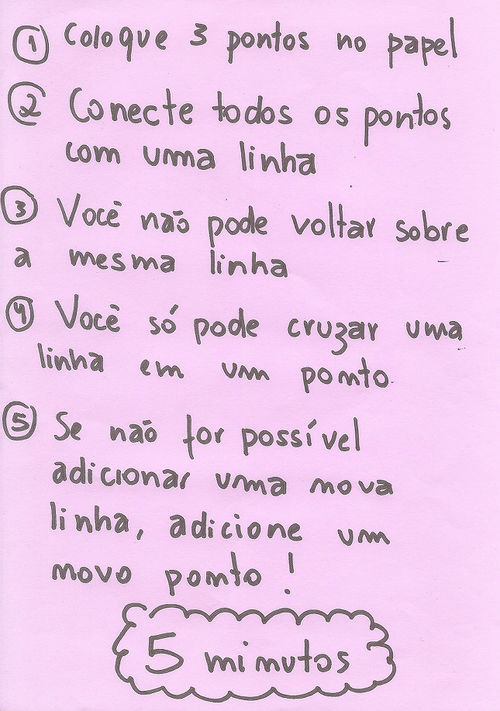 1 Coloque 3 pontos no papel
2 Conecte todos os pontos
com uma linha
3 Você não pode voltar sobre
a mesma linha
4 Você só pode cruzar uma
linha em um ponto.
5 Se não for possível
adicionar uma nova
linha, adicione um
novo ponto!
5 minutos